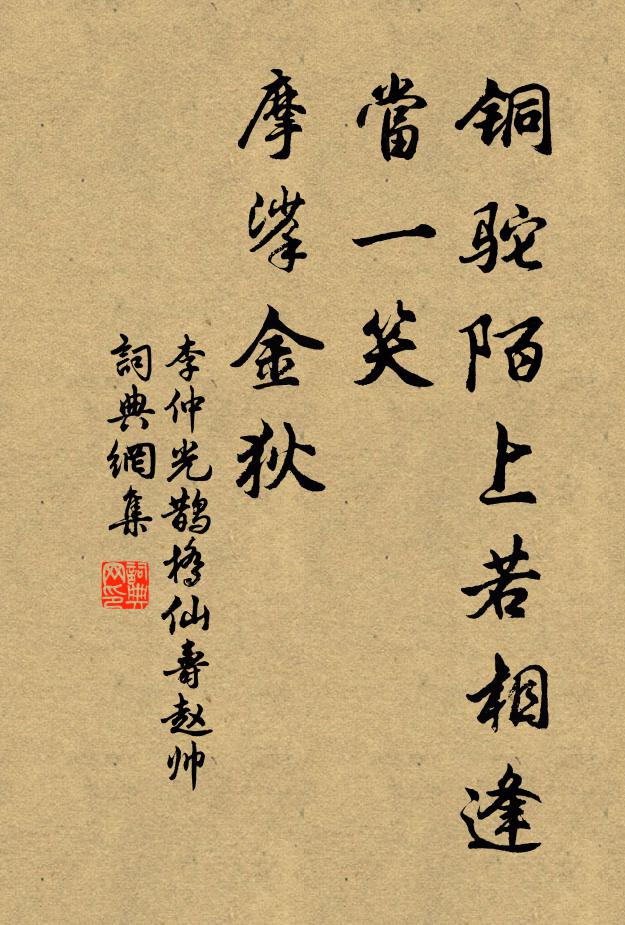 铜驼陌上若相逢
當一笑
摩挲金狄
李仲光鹊橋仙壽赵帅
詞典網集
詞典网印